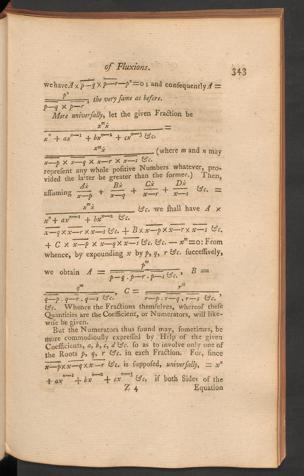 of Fluxions.
343
we have A × p—q × p—r—pⁿ = 0; and consequently A =
pⁿ
p—q × p—r, the very same as before.
More universally, let the given Fraction be
xᵐẋ
xⁿ + axⁿ⁻¹ + bxⁿ⁻² + cxⁿ⁻³ &c. =
xᵐẋ
x—p × x—q × x—r × x—s &c. (where m and n may
represent any whole positive Numbers whatever, pro-
vided the latter be greater than the former.) Then,
assuming Aẋ/x—p + Bẋ/x—q + Cẋ/x—r + Dẋ/x—s &c. =
xᵐẋ
xⁿ + axⁿ⁻¹ + bxⁿ⁻² &c. we shall have A ×
x—q × x—r × x—s &c. + B × x—p × x—r × x—s &c.
+ C × x—p × x—q × x—s &c. &c. — xᵐ = 0: From
whence, by expounding x by p, q, r &c. successively,
we obtain A = pᵐ/p—q . p—r . p—s &c., B =
qᵐ/q—p . q—r . q—s &c., C = rᵐ/r—p . r—q . r—s &c.,
&c. Whence the Fractions themselves, whereof these
Quantities are the Coefficient, or Numerators, will like-
wise be given.
But the Numerators thus found may, sometimes, be
more commodiously expressed by Help of the given
Coefficients, a, b, c, d &c. so as to involve only one of
the Roots p, q, r &c. in each Fraction. For, since
x—p × x—q × x—r &c. is supposed, universally, = xⁿ
+ axⁿ⁻¹ + bxⁿ⁻² + cxⁿ⁻³ &c. if both Sides of the
Z 4
Equation